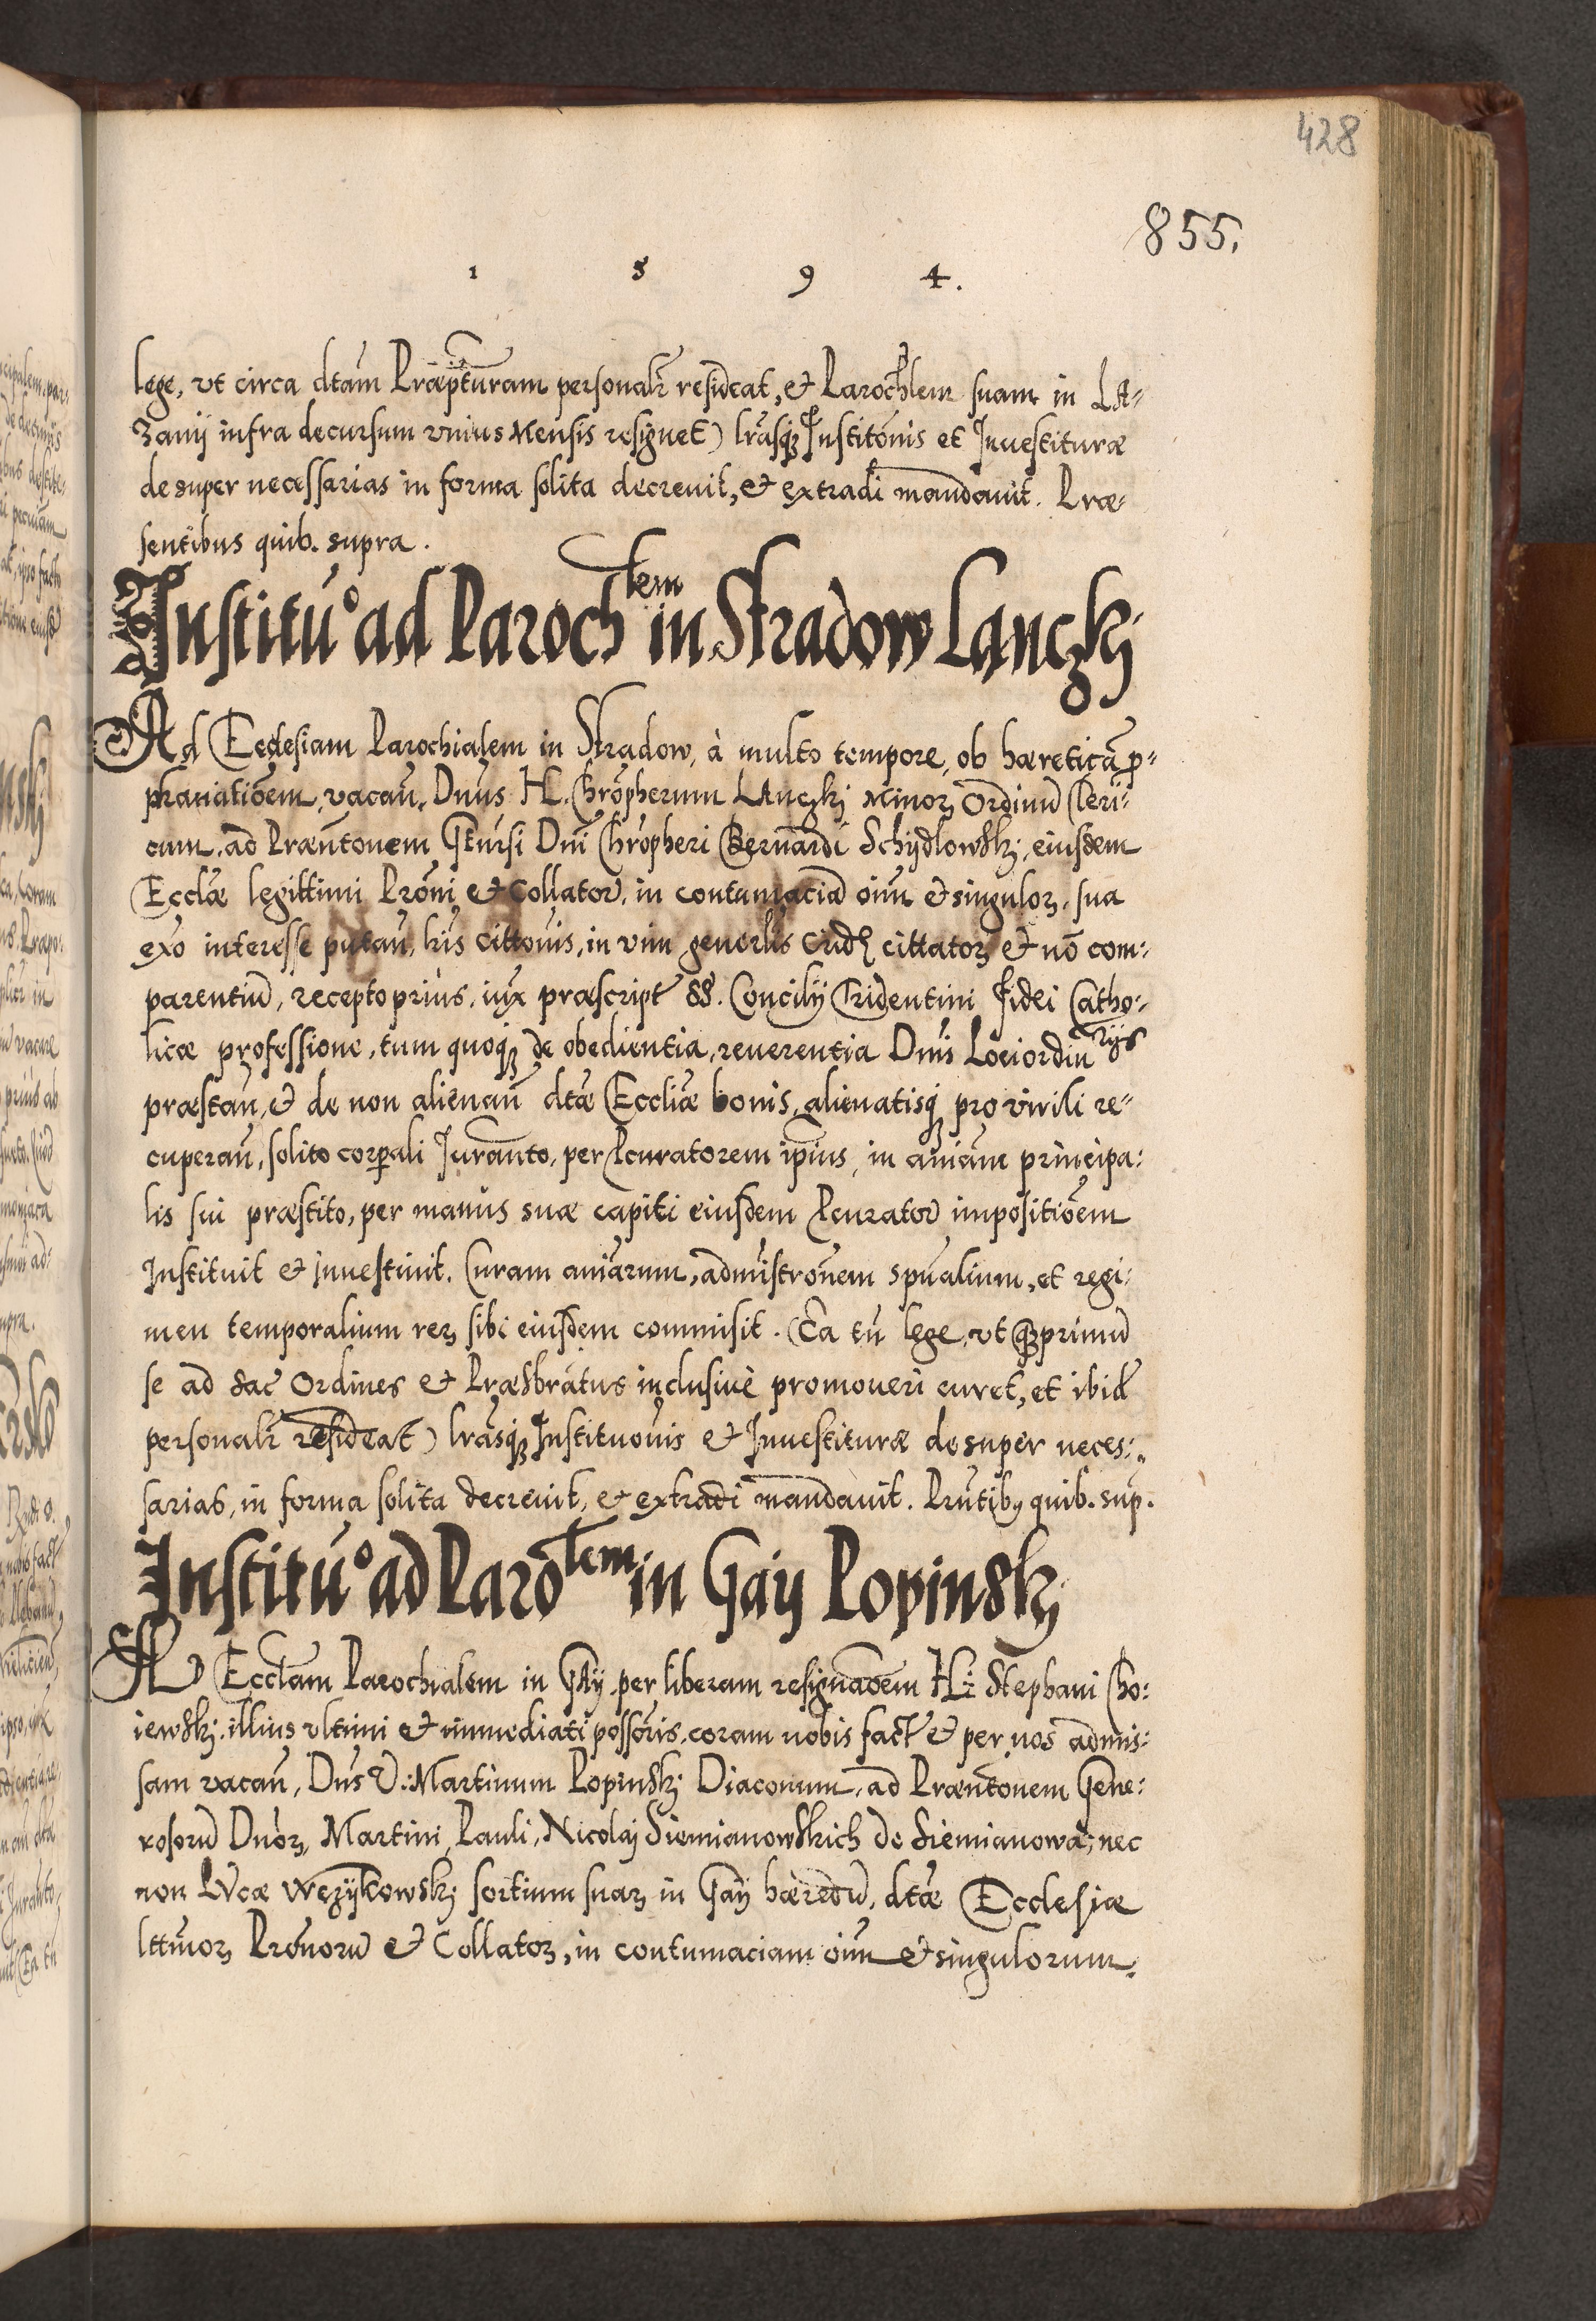 428
855.
1 5 9 4.
lege, vt circa dtam Præpturam personalr resideat, et Parochlem suam in LA-
zanÿ infra decursum vnius Mensis resignet) lrasq3 Institonis et Inuestituræ
desuper necessarias in forma solita decreuit, et extradi mandauit. Præ-
sentibus quib. supra.
Institu° ad Paroch lem in Stradow Lanczkj
Ad Ecclesiam Parochialem in Stradow, à multo tempore, ob hæreticã p-
phanatiõem, vacan, Dnus H. Chrõpherum LAnczkj Minorz Ordinũ Cleri-
cum, ad Præntonem Gñrsi Dni Chrõpheri Bernardi Schÿdlowskj, eiusdem
Ecclæ legittimi Prõni et Collator, in contumaciã oium et singulorz, sua
exo interesse putan, lris cittonis, in vim generlis cridæ cittatorz et nõ com-
parentiũ, recepto prius, iux præscript SS. Concilÿ Tridentini fidei Catho-
licæ professione, tum quoq3 de obedientia, reuerentia Dnis Loci ordin rÿs
præstan, et de non alienan dtæ Eccliæ bonis, alienatisq3 pro virili re-
cuperan, solito corporali Iuramto, per Pcuratorem ipsius, in aniam principa-
lis sui præstito, per manus suæ capiti eiusdem Pcurator impositiõem
Instituit et inuestiuit. Curam aniarum, administronem spualium, et regi-
men temporalium rerz sibi eiusdem commisit. (Ea tñ lege, vt q3primũ
se ad sac Ordines et Præsbratus inclusiuè promoueri curet, et ibid
personalr resideat) lrasq3 Instituonis et Inuestituræ desuper neces-
sarias, in forma solita decreuit, et extradi mandauit. Prntib9 quib. sup.
Institu° ad Paro lem in Gaÿ Popinskj
AD Ecclam Parochialem in GAÿ, per liberam resignaoem H: Stephani Cho-
iewskj, illius vltimi et immediati possoris, coram nobis fact et per nos admis-
sam vacan, Dns V: Martinum Popinskj Diaconum, ad Præntonem Gene-
rosorũ Dnorz, Martini, Pauli, Nicolaj Siemianowskich de Siemianowa, nec
non LVcæ Wężÿkowskj sortium suarz in Gaÿ hæredũ, dtæ Ecclesiæ
lttmorz Prõnorũ et Collatorz, in contumaciam oium et singulorum